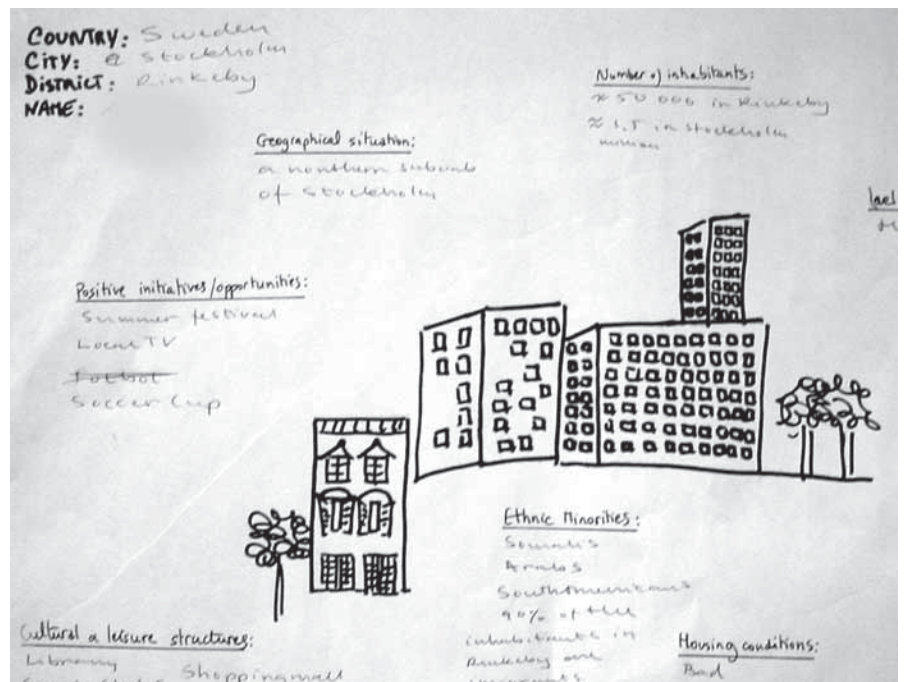 COUNTRY: Sweden
CITY: Stockholm
DISTRICT: Rinkeby
NAME:
Number of inhabitants:
≈ 50 000 in Rinkeby
≈ 1,5 in Stockholm
million
Geographical situation:
a northern suburb
of Stockholm
Positive initiatives/opportunities:
Summer festival
Local TV
Soccer Cup
Ethnic Minorities:
Somalis
Arabs
Southamericans
90% of the
inhabitants in
Rinkeby are
Cultural & leisure structures:
Library
Shoppingmall
Housing conditions:
Bad